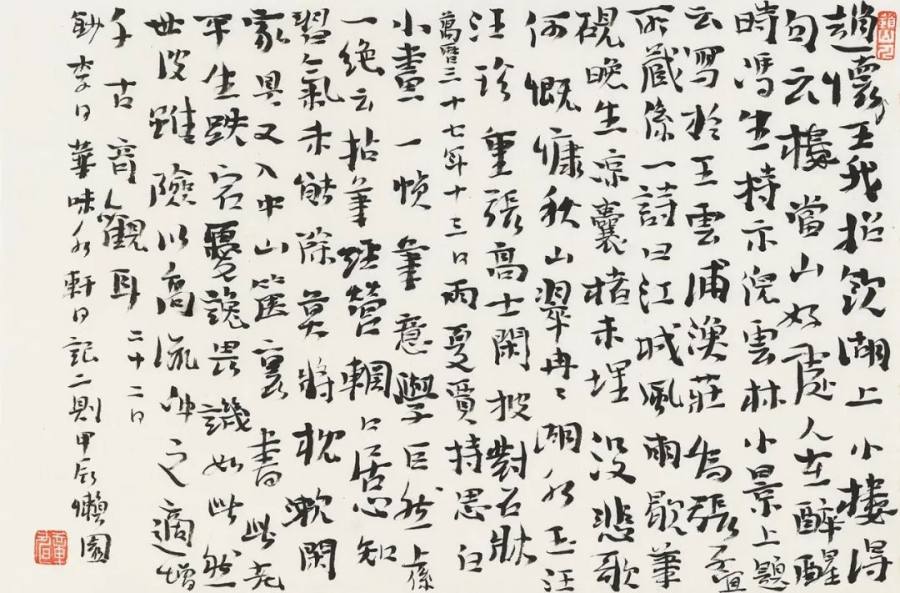 趙王我招飲湖上小樓得
句云樓當山好處人在醉醒
時馮生持示倪雲林小景上題
云寫於王雲浦漁莊為張
所藏係一詩曰江城風雨歇筆
硯晚生涼囊楮未埋沒悲歌
何慨慷秋山翠冉〻湖水玉汪
汪珍重張高士閑披對石牀
萬曆三十七年十三日雨夏賈持思白
小畫一幀筆意學巨然上係
一絕云拈筆經營輞口居心知
習氣未能除莫將枕漱閑
家具又入中山篋裏書此老
平生跌宕憂讒畏譏如此然
世波雖險以高流冲之適增
千古奇觀耳 二十二日
鈔李日華味水軒日記二則甲辰懶園